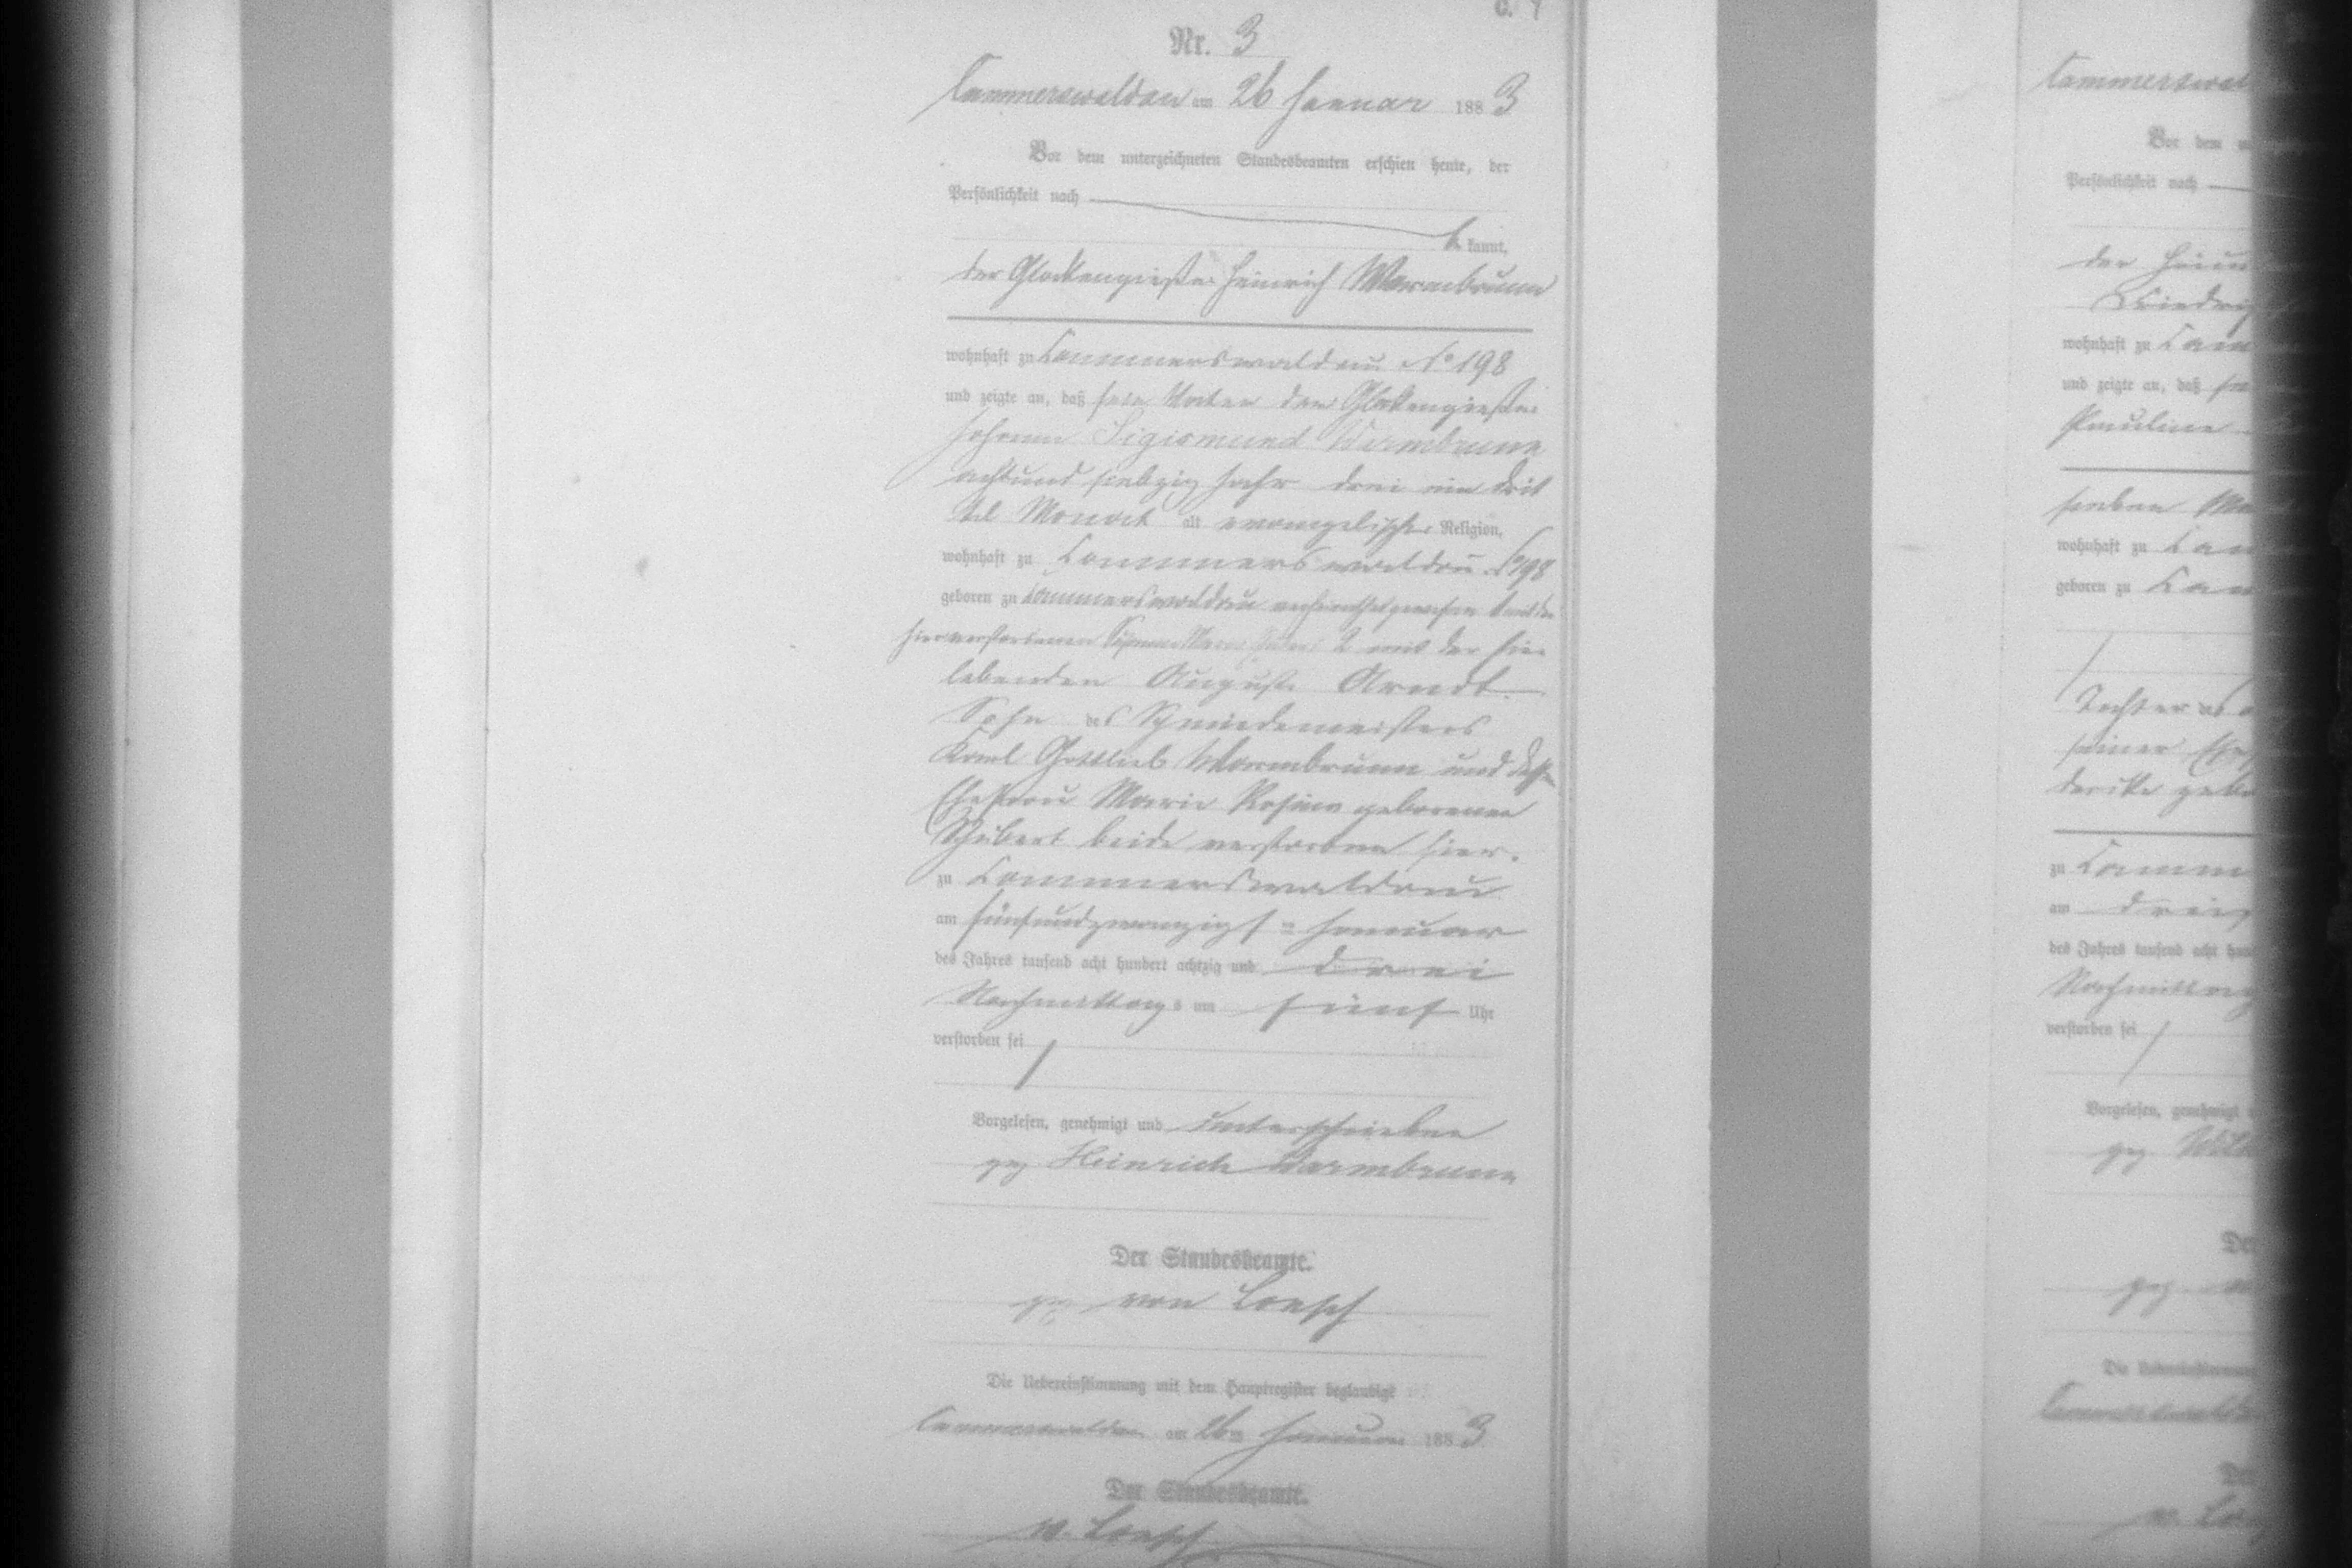 C. 4
Nr. 3
Cammerswaldau am 26 Januar 1883
Vor dem unterzeichneten Standesbeamten erschien heute, der
Persönlichkeit nach
be kannt,
der Glockengießer Heinrich Warmbrunn
wohnhaft zu Cammerswaldau No 198
und zeigte an, daß sein Vater der Glockengießer
Johann Sigismund Warmbrunn
achtund siebzig Jahr drei ein drit
tel Monat alt evangelischer Religion,
wohnhaft zu Cammerswaldau No 198
geboren zu Cammerswaldau verheirathet gewesen 1 mit der
hier verstorbenen 2 mit der hier
lebenden August Arndt
Sohn des Schmiedemeisters
Karl Gottlieb Warmbrunn und dessen
Ehefrau Marie Rosina geborenen
Schubert beide verstorben hier.
zu Cammerswaldau
am fünfundzwanzigsten Januar
des Jahres tausend acht hundert achtzig und drei
Nachmittags um fünf Uhr
verstorben sei
Vorgelesen, genehmigt und unterschrieben
gez Heinrich Warmbrunn
Der Standesbeamte.
gez von Loesch
Die Uebereinstimmung mit dem Hauptregister beglaubigt
Cammerswaldau am 26ten Januar 1883
Der Standesbeamte.
v. Loesch
Cammerswal
Vor dem
Persönlichkeit nach
der
wohnhaft zu Cam
und zeigte an, daß
Pauline
sieben
wohnhaft zu Cam
geboren zu Cam
Tochter des
seiner
zu Camm
am
des Jahres tausend acht hun
Nachmittag
verstorben sei
Vorgelesen, genehmigt
gez
De
gez
Die Uebereinstimmung